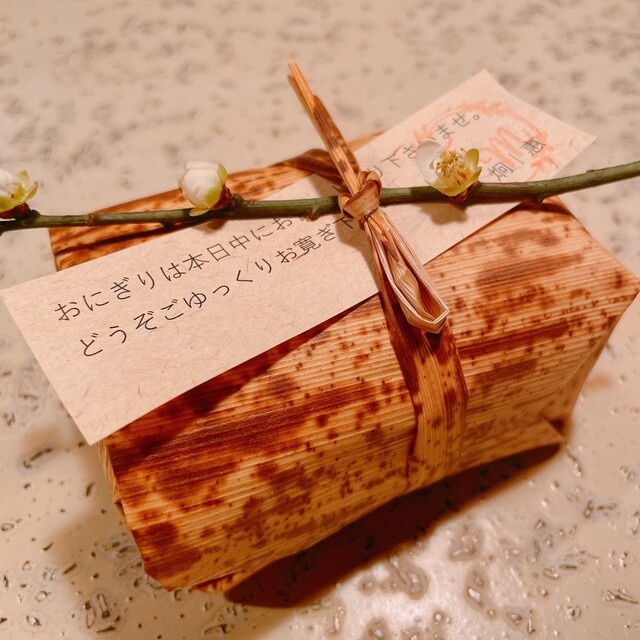 おにぎりは本日中にお の下さいませ。
どうぞごゆっくりお寛ぎ